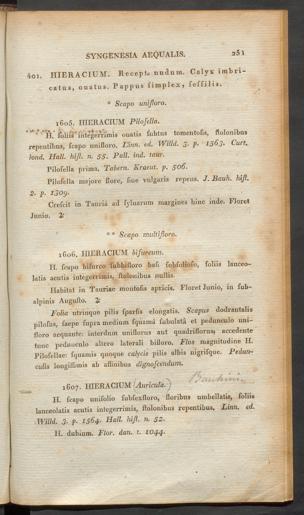 SYNGENESIA AEQUALIS. 251
401. HIERACIUM. Recept. nudum. Calyx imbri-
catus, ouatus. Pappus simplex, sessilis.
* Scapo unifloro.
1605. HIERACIUM Pilosella.
H. foliis integerrimis ouatis subtus tomentosis, stolonibus
repentibus, scapo unifloro. Linn. ed. Willd. 3. p. 1563. Curt.
lond. Hall. hist. n. 55. Pall. ind. taur.
Pilosella prima. Tabern. Kraeut. p. 506.
Pilosella majore flore, siue vulgaris repens. J. Bauh. hist.
2. p. 1309.
Crescit in Tauria ad syluarum margines hinc inde. Floret
Junio. ♃
** Scapo multifloro.
1606. HIERACIUM bifurcum.
H. scapo bifurco subbifloro basi subfolioso, foliis lanceo-
latis acutis integerrimis, stolonibus nullis.
Habitat in Tauriae montosis apricis. Floret Junio, in sub-
alpinis Augusto. ♃
Folia utrinque pilis sparsis elongatis. Scapus dodrantalis
pilosus, saepe supra medium squamâ subulatâ et pedunculo uni-
floro acequante: interdum uniflorus aut quadriflorus, accedente
tunc pedunculo altero laterali bifloro. Flos magnitudine H.
Pilosellae: squamis quoque calycis pilis albis nigrisque. Pedun-
culis longissimis ab affinibus dignoscendum.
1607. HIERACIUM (Auricula.) Bauhini
H. scapo unifolio subsexfloro, floribus umbellatis, foliis
lanceolatis acutis integerrimis, stolonibus repentibus. Linn. ed.
Willd. 3. p. 1564. Hall. hist. n. 52.
H. dubium. Flor. dan. t. 1044.